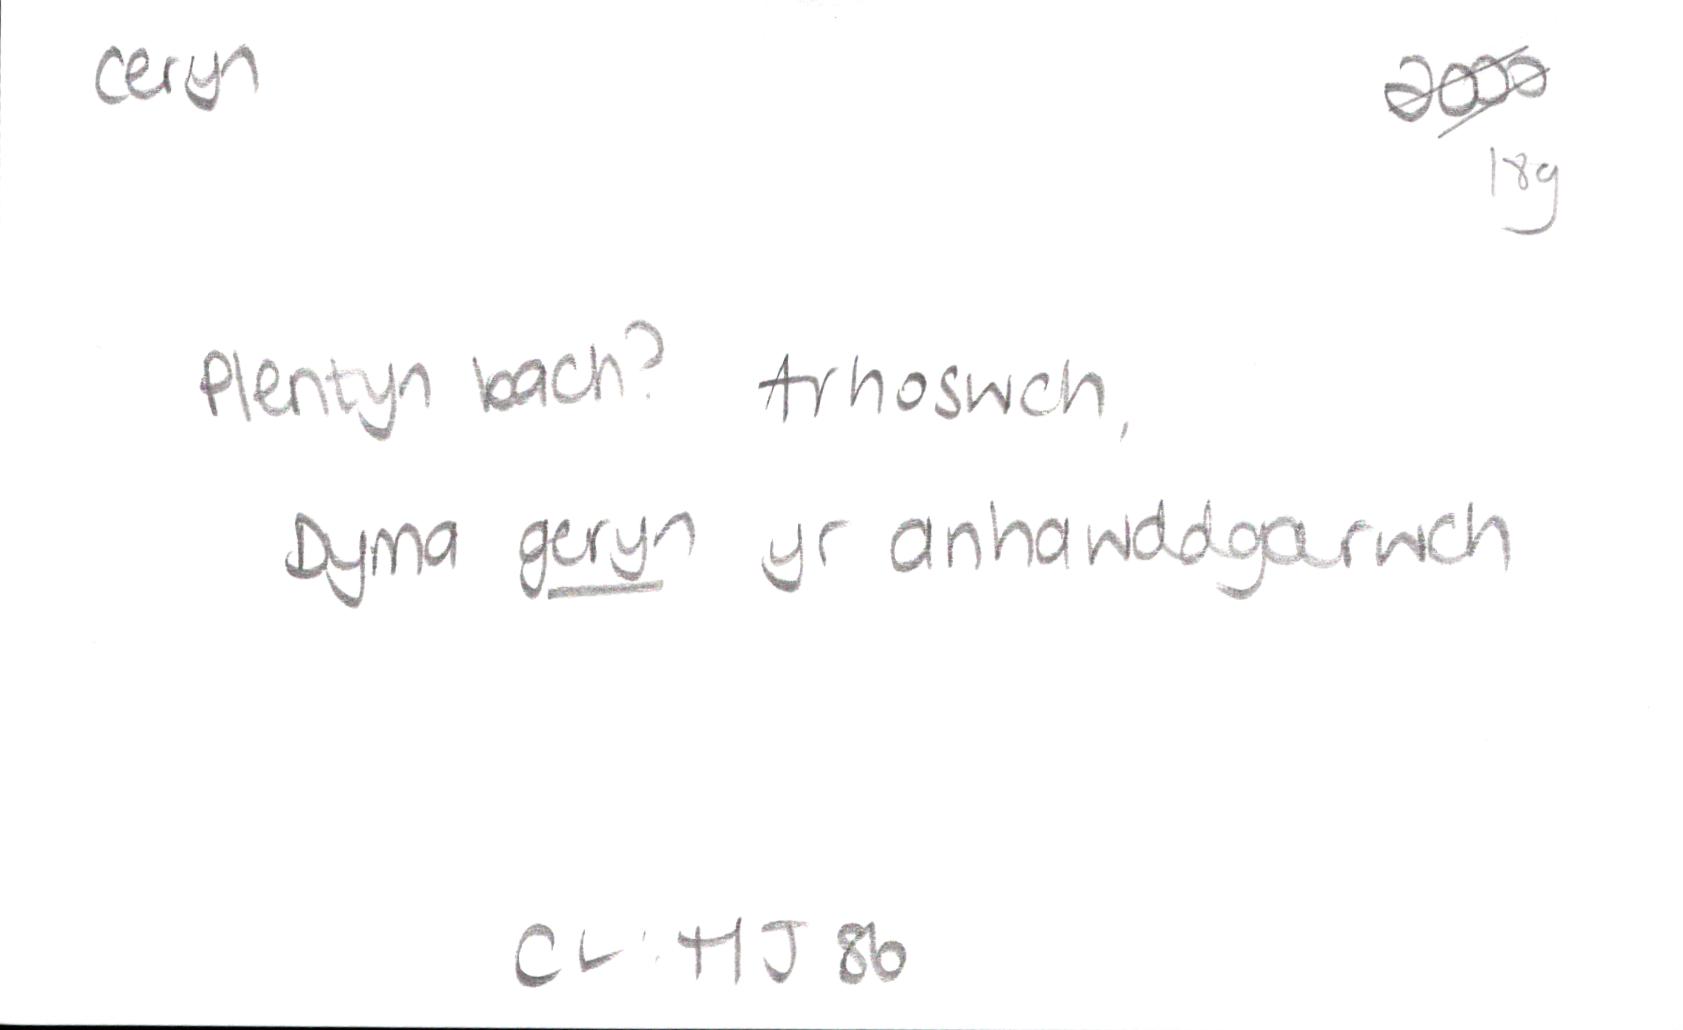 ceryn
2000
18g
Plentyn bach? Arhoswch,
Dyma geryn yr anhawddgarwch
CL: HJ 86